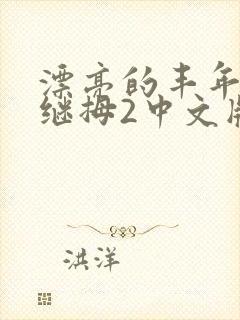 漂亮的丰年
继拇2中文版
洪洋